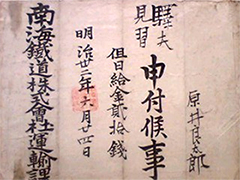 原井
驛夫
見習
申付候事
但日給金貳拾錢
明治卅二年六月廿四日
南海鐵道株式會社運輸課